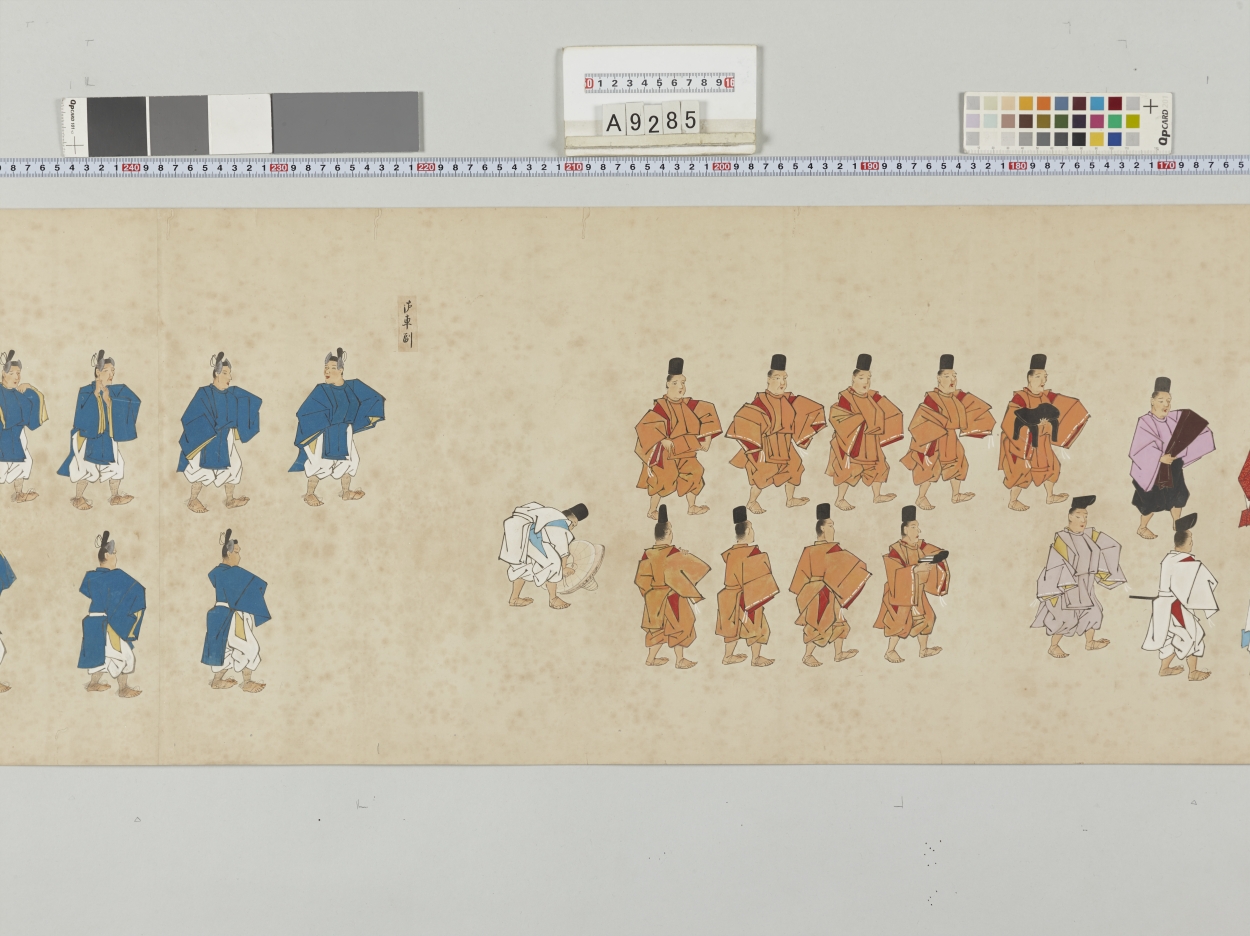 QpCARD 101
0 1 2 3 4 5 6 7 8 9 10
A9285
QpCARD 201
7 6 5 4 3 2 1 240 9 8 7 6 5 4 3 2 1 230 9 8 7 6 5 4 3 2 1 220 9 8 7 6 5 4 3 2 1 210 9 8 7 6 5 4 3 2 1 200 9 8 7 6 5 4 3 2 1 190 9 8 7 6 5 4 3 2 1 180 9 8 7 6 5 4 3 2 1 170 9 8 7 6 5
車副